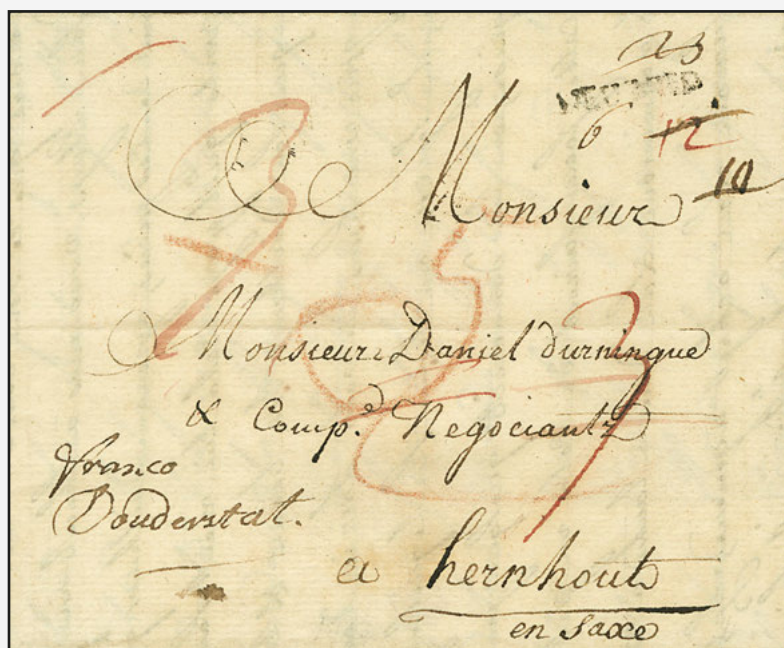 23
6 12
10
Monsieur
Monsieur Daniel durninque
& Comp.ᵉ Negociantz
franco
Douderstat.
a hernhout
en Saxe